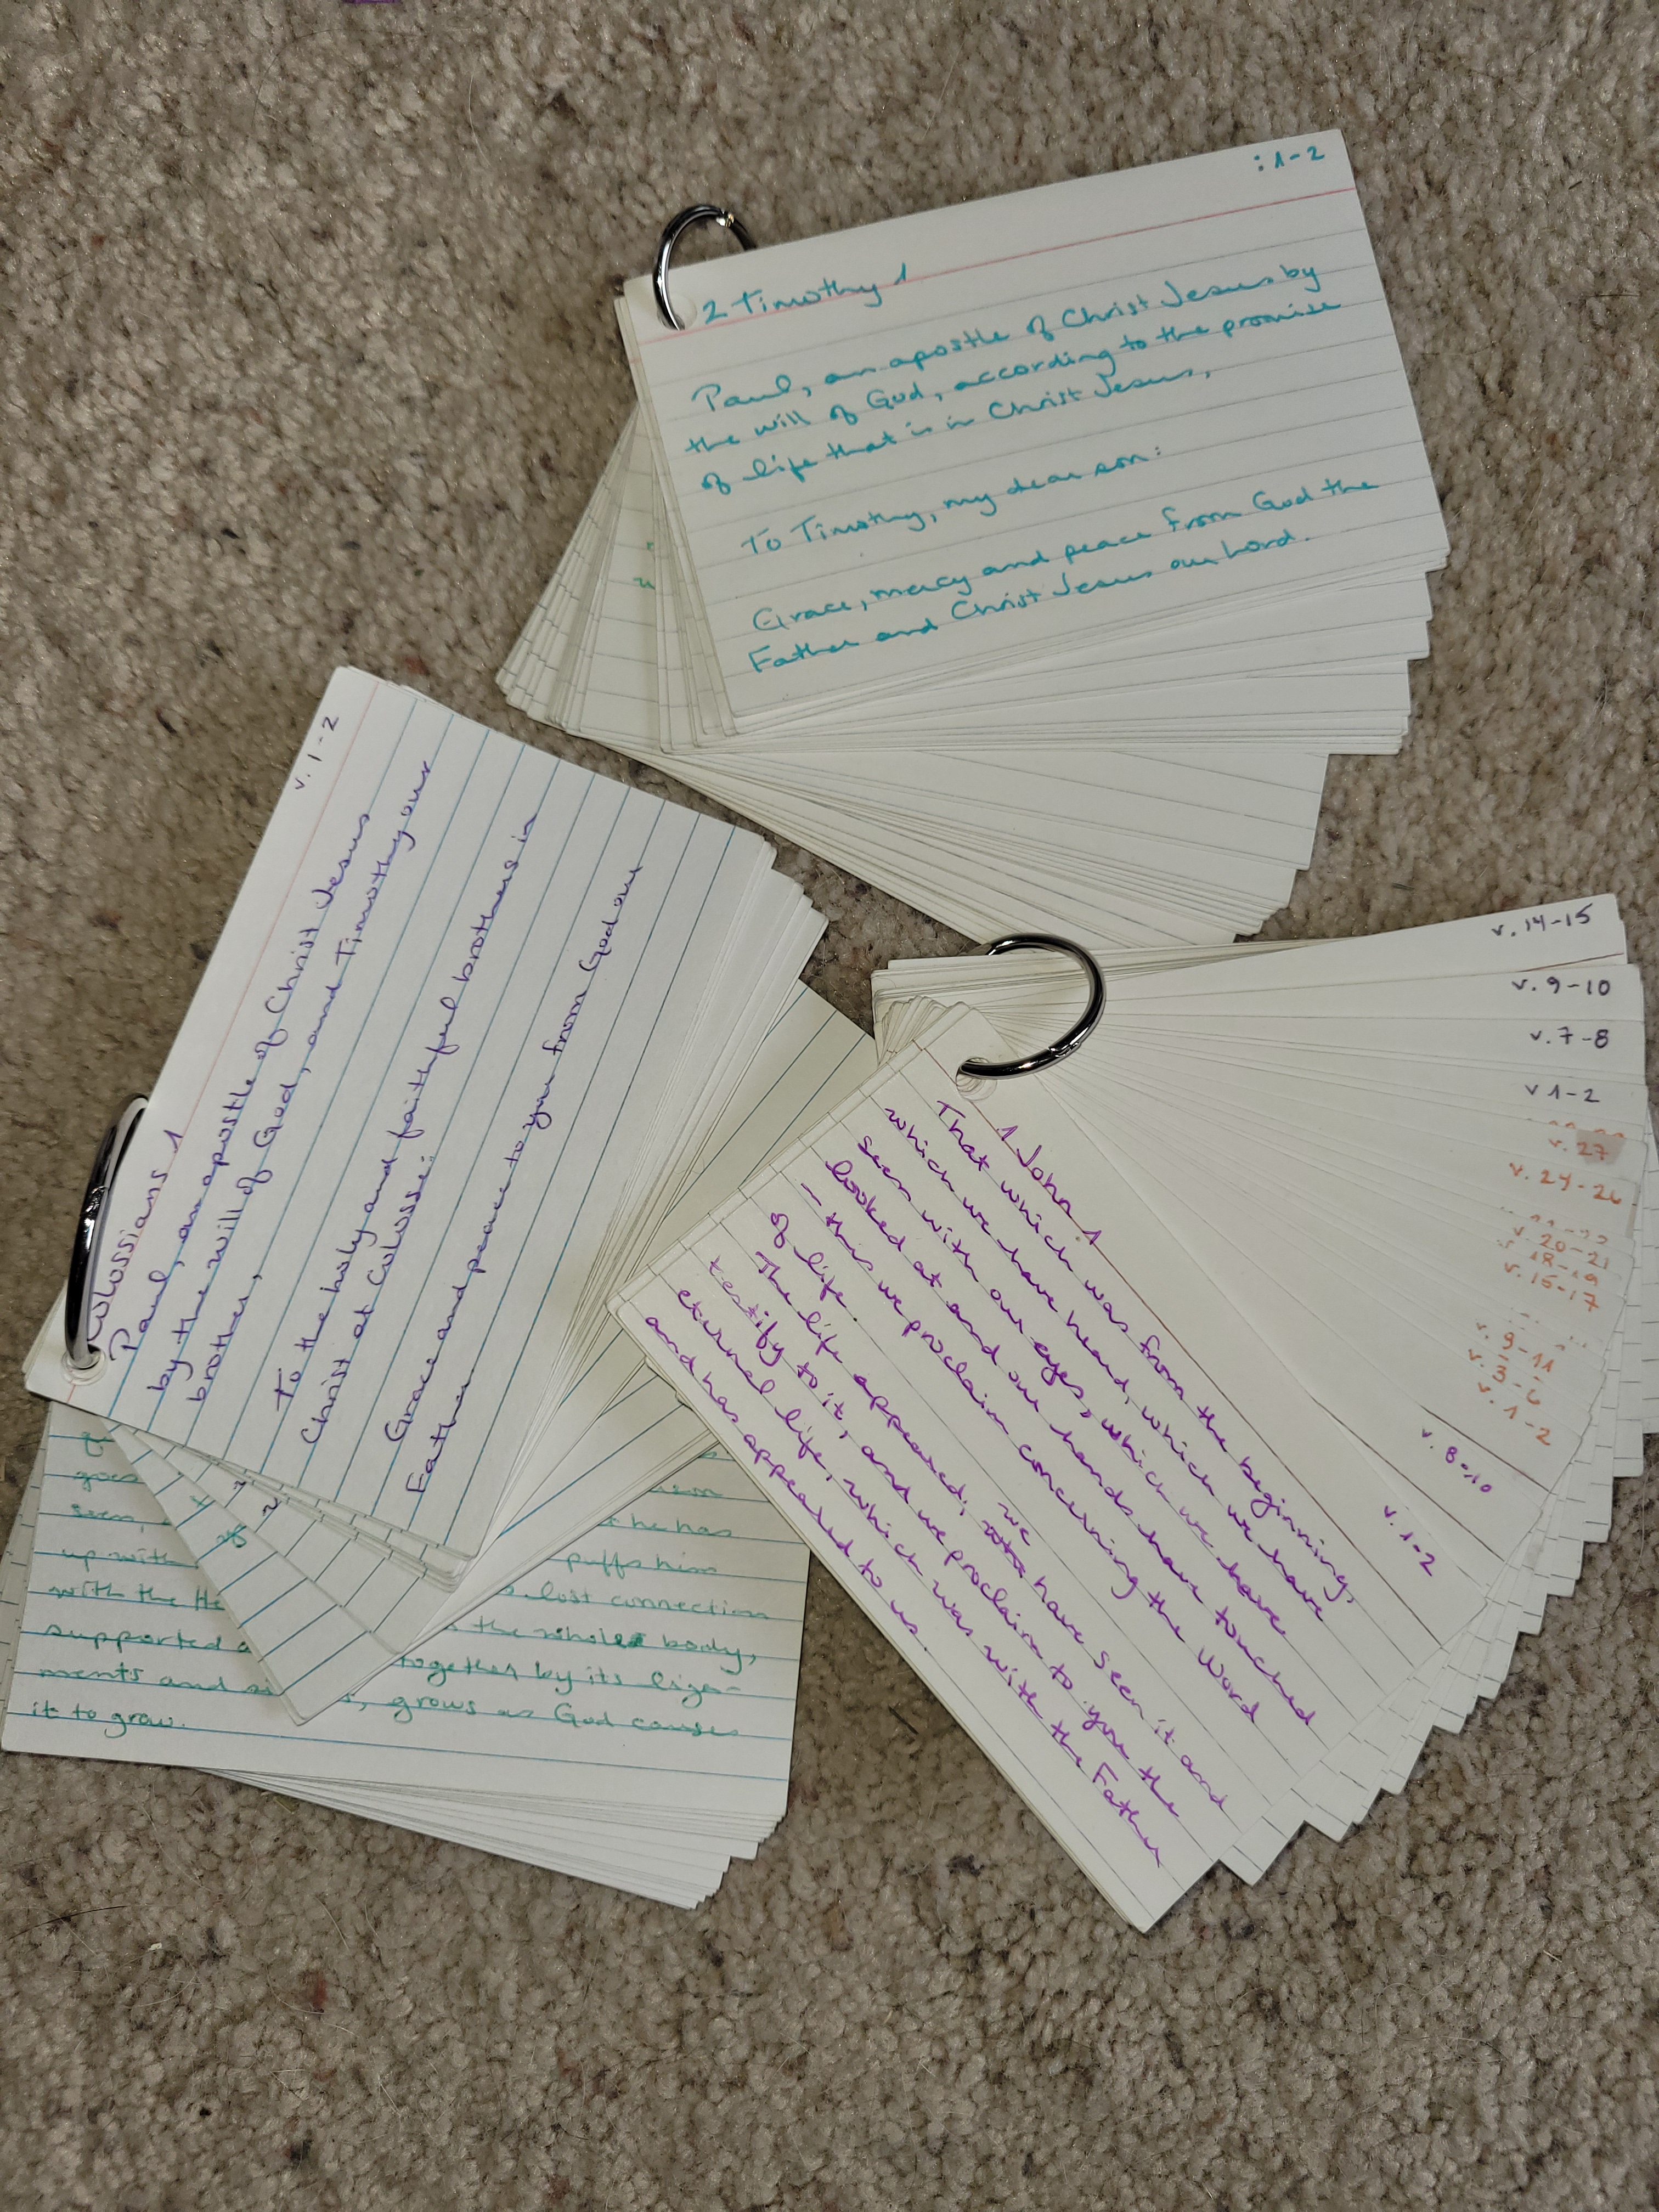 : 1-2
2 Timothy 1
Paul, an apostle of Christ Jesus by
the will of God, according to the promise
of life that is in Christ Jesus,
To Timothy, my dear son:
Grace, mercy and peace from God the
Father and Christ Jesus our Lord.
v. 1-2
Colossians 1
Paul, an apostle of Christ Jesus
by the will of God, and Timothy our
brother,
To the holy and faithful brothers in
Christ at Colosse:
Grace and peace to you from God our
Father
v. 14-15
v. 9-10
v. 7-8
v 1-2
v. 27
v. 24-26
v. 20-21
v. 18-19
v. 15-17
v. 9-11
v. 3-6
v. 1-2
v. 8-10
v. 1-2
1 John 1
That which was from the beginning,
which we have heard, which we have
seen with our eyes, which we have
looked at and our hands have touched
- this we proclaim concerning the Word
of life.
The life appeared; we have seen it and
testify to it, and we proclaim to you the
eternal life, which was with the Father
and has appeared to us.
goes
seen, he has
up with puffs him
with the He lost connection
supported the whole body,
together by its liga-
ments and grows as God causes
it to grow.